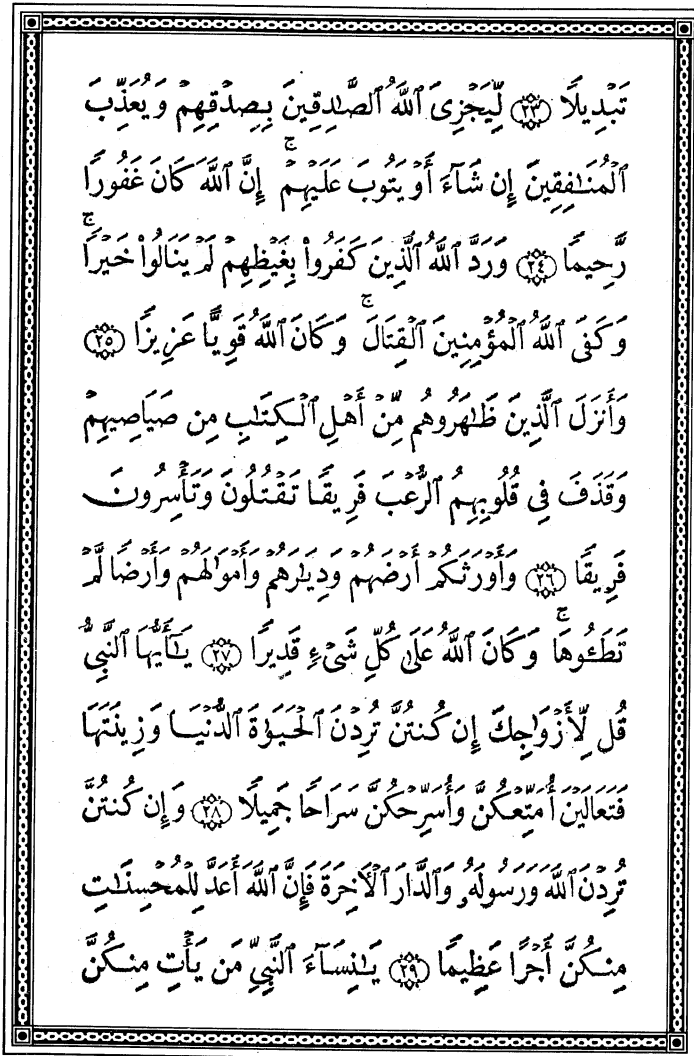 تَبْدِيلًا ﴿٢٣﴾ لِّيَجْزِىَ ٱللَّهُ ٱلصَّـٰدِقِينَ بِصِدْقِهِمْ وَيُعَذِّبَ
ٱلْمُنَـٰفِقِينَ إِن شَآءَ أَوْ يَتُوبَ عَلَيْهِمْ ۚ إِنَّ ٱللَّهَ كَانَ غَفُورًا
رَّحِيمًا ﴿٢٤﴾ وَرَدَّ ٱللَّهُ ٱلَّذِينَ كَفَرُوا۟ بِغَيْظِهِمْ لَمْ يَنَالُوا۟ خَيْرًا ۚ
وَكَفَى ٱللَّهُ ٱلْمُؤْمِنِينَ ٱلْقِتَالَ ۚ وَكَانَ ٱللَّهُ قَوِيًّا عَزِيزًا ﴿٢٥﴾
وَأَنزَلَ ٱلَّذِينَ ظَـٰهَرُوهُم مِّنْ أَهْلِ ٱلْكِتَـٰبِ مِن صَيَاصِيهِمْ
وَقَذَفَ فِى قُلُوبِهِمُ ٱلرُّعْبَ فَرِيقًا تَقْتُلُونَ وَتَأْسِرُونَ
فَرِيقًا ﴿٢٦﴾ وَأَوْرَثَكُمْ أَرْضَهُمْ وَدِيَـٰرَهُمْ وَأَمْوَٰلَهُمْ وَأَرْضًا لَّمْ
تَطَـُٔوهَا ۚ وَكَانَ ٱللَّهُ عَلَىٰ كُلِّ شَىْءٍ قَدِيرًا ﴿٢٧﴾ يَـٰٓأَيُّهَا ٱلنَّبِىُّ
قُل لِّأَزْوَٰجِكَ إِن كُنتُنَّ تُرِدْنَ ٱلْحَيَوٰةَ ٱلدُّنْيَا وَزِينَتَهَا
فَتَعَالَيْنَ أُمَتِّعْكُنَّ وَأُسَرِّحْكُنَّ سَرَاحًا جَمِيلًا ﴿٢٨﴾ وَإِن كُنتُنَّ
تُرِدْنَ ٱللَّهَ وَرَسُولَهُۥ وَٱلدَّارَ ٱلْـَٔاخِرَةَ فَإِنَّ ٱللَّهَ أَعَدَّ لِلْمُحْسِنَـٰتِ
مِنكُنَّ أَجْرًا عَظِيمًا ﴿٢٩﴾ يَـٰنِسَآءَ ٱلنَّبِىِّ مَن يَأْتِ مِنكُنَّ